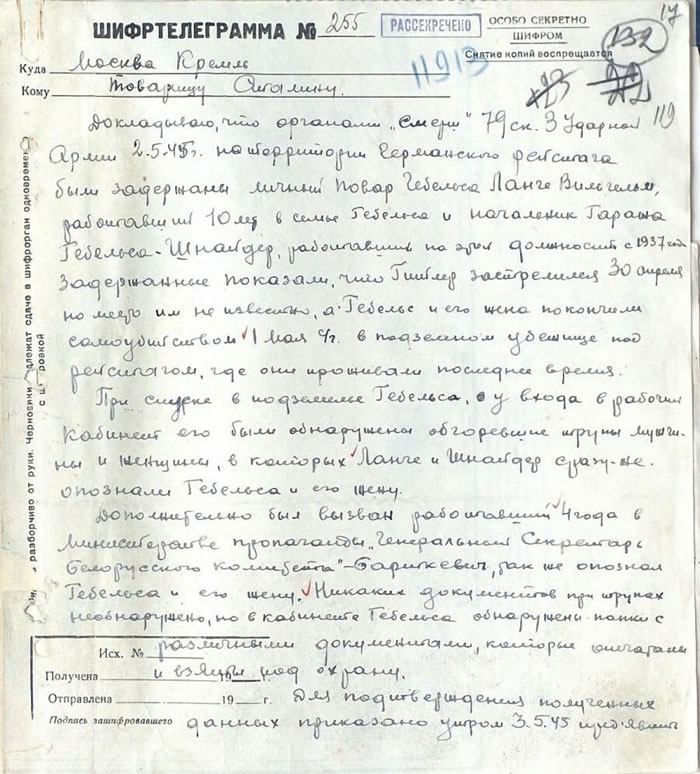 ШИФРТЕЛЕГРАММА № 255
РАССЕКРЕЧЕНО
ОСОБО СЕКРЕТНО
ШИФРОМ
Снятие копий воспрещается
17
132
Куда Москва Кремль
Кому Товарищу Сталину.
11913
23
22
119
Докладываю, что органами „Смерш" 79 ск. 3 Ударной
Армии 2.5.45г. на территории Германского рейстага
были задержаны личный повар Гебельса Ланге Вильгельм,
работавший 10 лет в семье Гебельса и начальник гаража
Гебельса - Шнайдер, работавший на этой должности с 1937 года
Задержанные показали, что Гитлер застрелился 30 апреля
но место им не известно, а Гебельс и его жена покончили
самоубийством 1 мая с/г. в подземном убежище под
рейстагом, где они проживали последнее время.
При спуске в подземелье Гебельса, у входа в рабочий
кабинет его были обнаружены обгоревшие трупы мужчи-
ны и женщины, в которых Ланге и Шнайдер сразу-же
опознали Гебельса и его жену.
Дополнительно был вызван работавший 4 года в
Министерстве пропаганды „Генеральный Секретарь
Белорусского комитета" - так же опознал
Гебельса и его жену. Никаких документов при трупах
необнаружено, но в кабинете Гебельса обнаружены папки с
различными документами, которые опечатаны
и взяты под охрану.
Для подтверждения полученных
данных приказано утром 3.5.45 предъявить
Исх. №
Получена 19
Отправлена 19 г.
Подпись зашифровавшего
разборчиво от руки. Черновики длежат сдаче в шифрорган одновремен